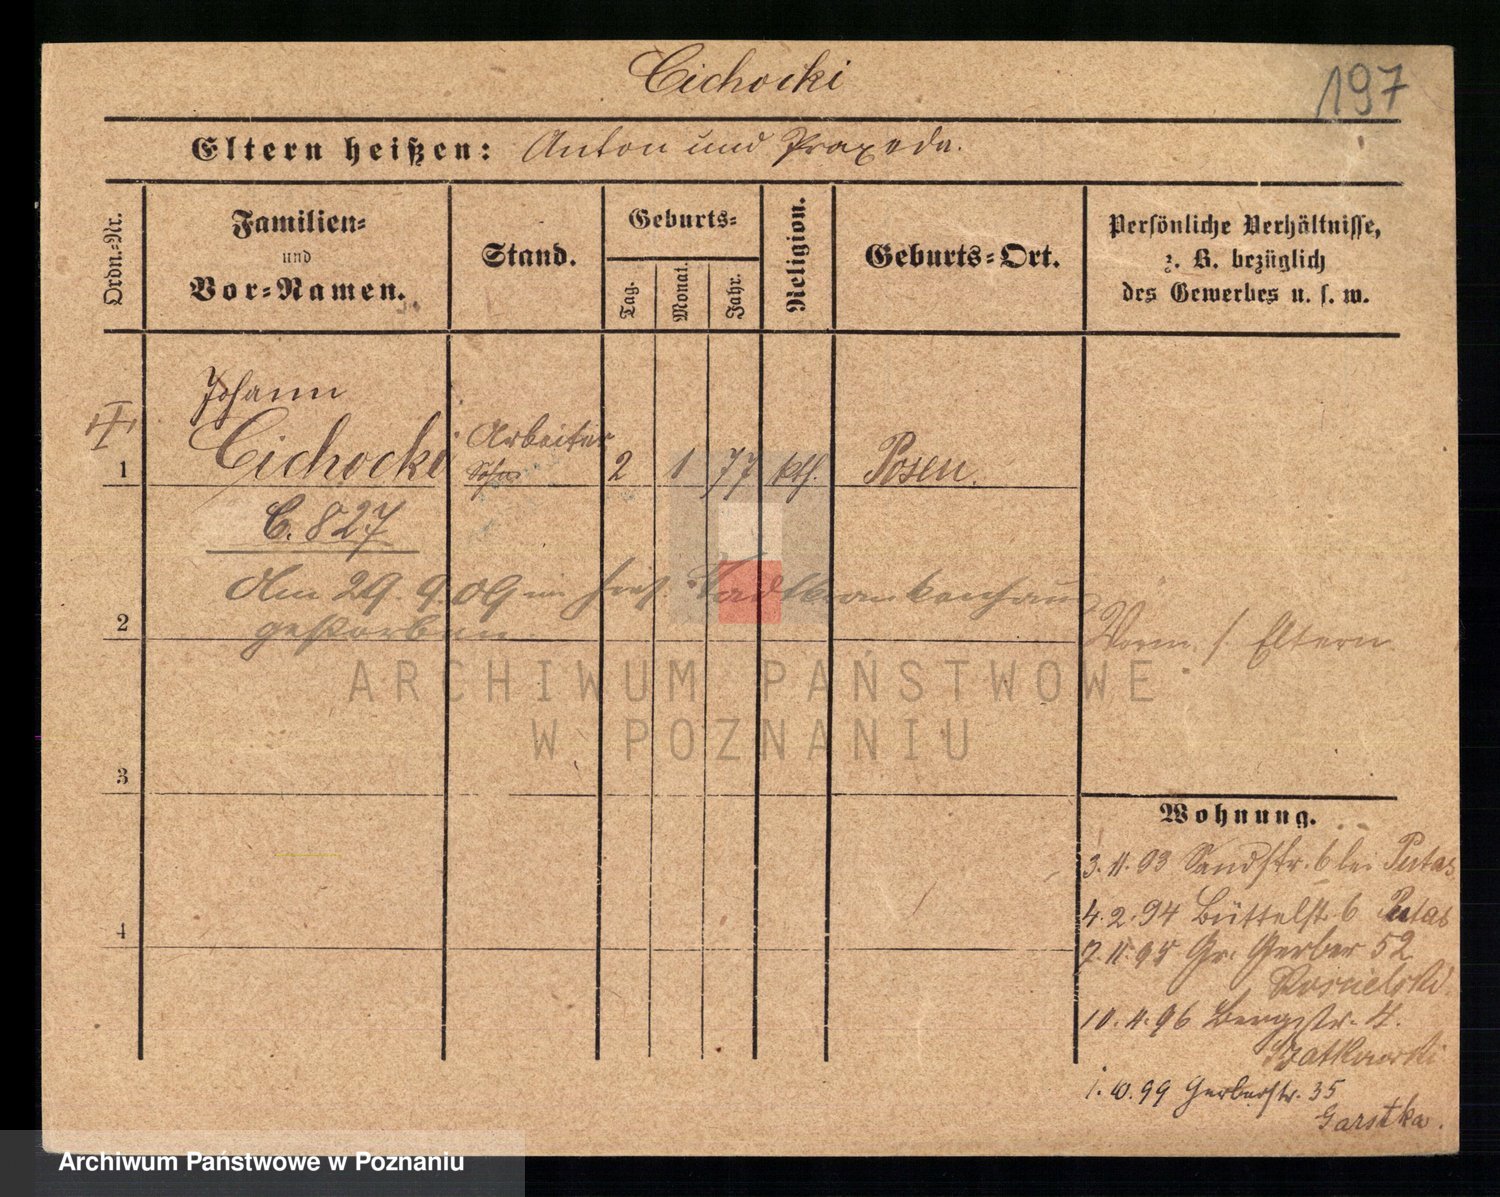 Cichocki
197
Eltern heißen: Anton und Praxeda.
Ordn.-Nr.
Familien-
und
Vor-Namen.
Stand.
Geburts-
Tag.
Monat.
Jahr.
Religion.
Geburts-Ort.
Persönliche Verhältnisse,
z. B. bezüglich
des Gewerbes u. s. w.
Johann
1 Cichocki Arbeiter 2 1 77 kth. Posen.
C. 827
Am 29.9.09 im hies. Stadtkrankenhaus
2 gestorben
Vorm. s. Eltern
ARCHIWUM PAŃSTWOWE
W POZNANIU
3
Wohnung.
3.11.93 Sandstr. 6 bei Putas
4.2.94 Büttelst. 6 Putas
4
7.11.95 Gr. Gerber 52
Koscielski
10.4.96 Bergstr. 4.
Jatkowski
1.10.99 Gerberstr. 35
Garstka.
Archiwum Państwowe w Poznaniu